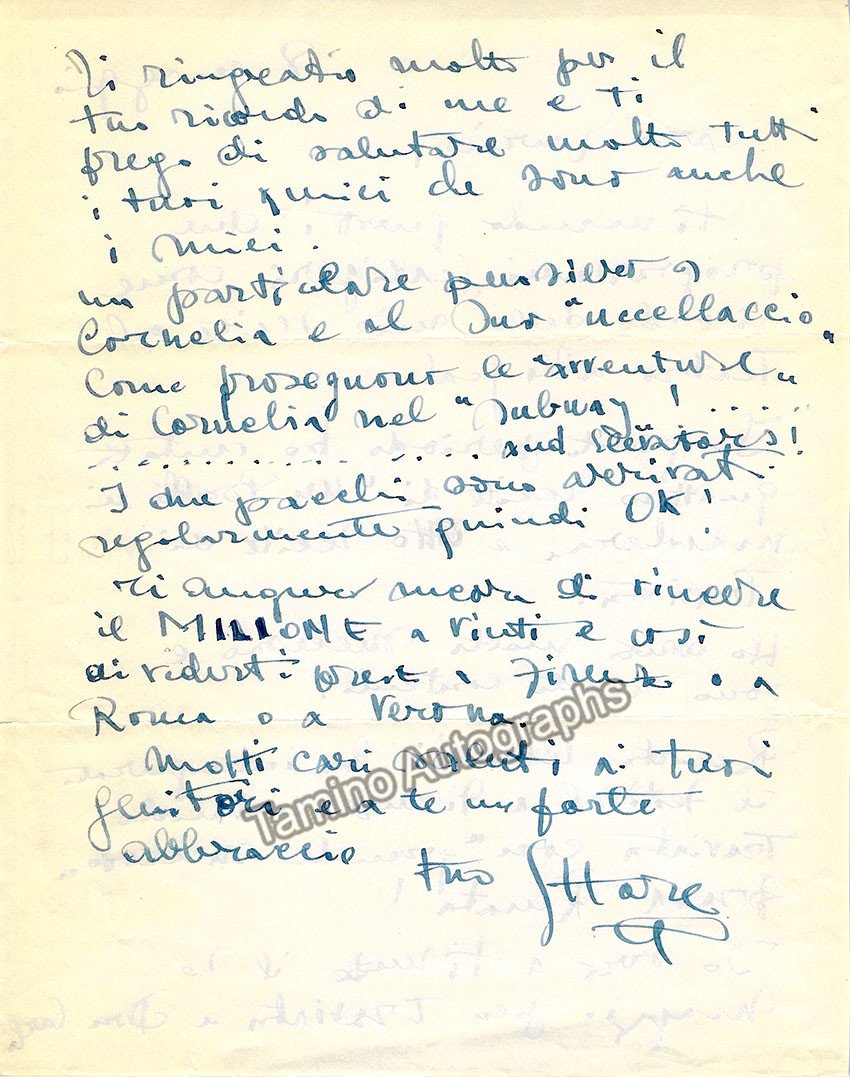 Ti ringrazio molto per il
tuo ricordo di me e ti
prego di salutare molto tutti
i tuoi amici che sono anche
i miei.
un particolare pensiero a
Cornelia e al suo "uccellaccio"
Come proseguono le "avventure"
di Cornelia nel "subway"! ....
................ and senators!
I due pacchi sono arrivati
regolarmente quindi OK!
Ti auguro ancora di vincere
il MILIONE a e così
di vederti presto a Firenze o a
Roma o a Verona.
Molti cari saluti ai tuoi
genitori e a te un forte
abbraccio
tuo Ettore
Tamino Autographs